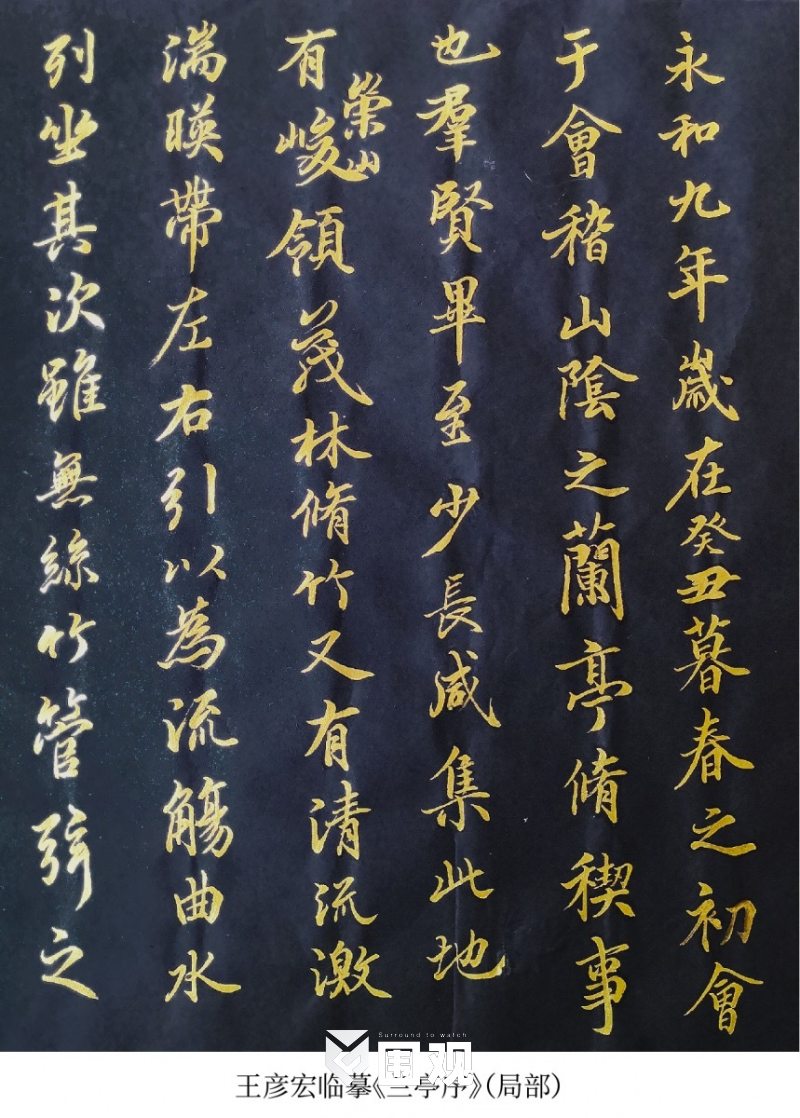 永和九年歲在癸丑暮春之初會
于會稽山陰之蘭亭脩稧事
也羣賢畢至少長咸集此地
有崇山峻領茂林脩竹又有清流激
湍暎帶左右引以為流觴曲水
列坐其次雖無絲竹管弦之
Surround to watch
围观
王彦宏临摹《兰亭序》(局部)